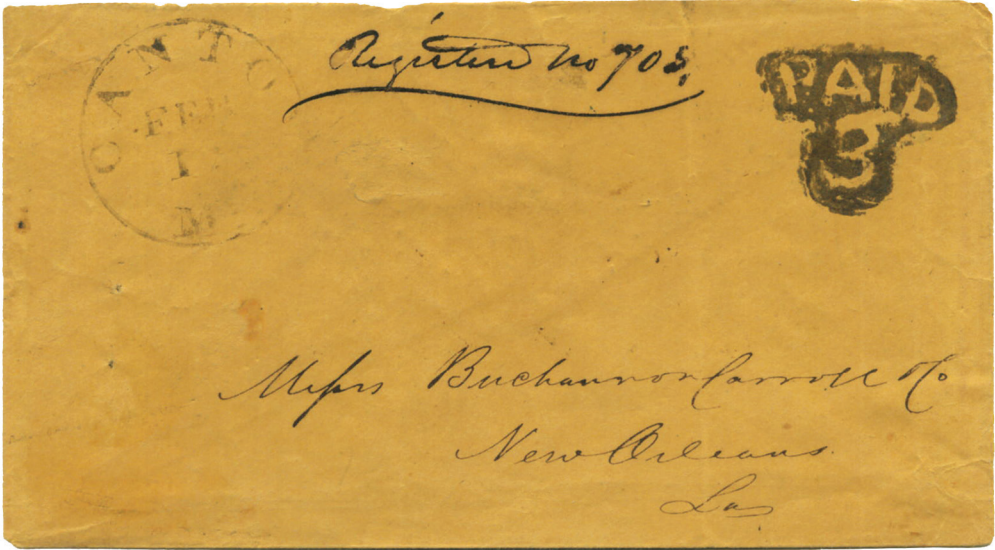 CANTON
FEB
1
M
Registered No 703,
PAID
3
Messrs Buchannon Carroll & Co
New Orleans
La